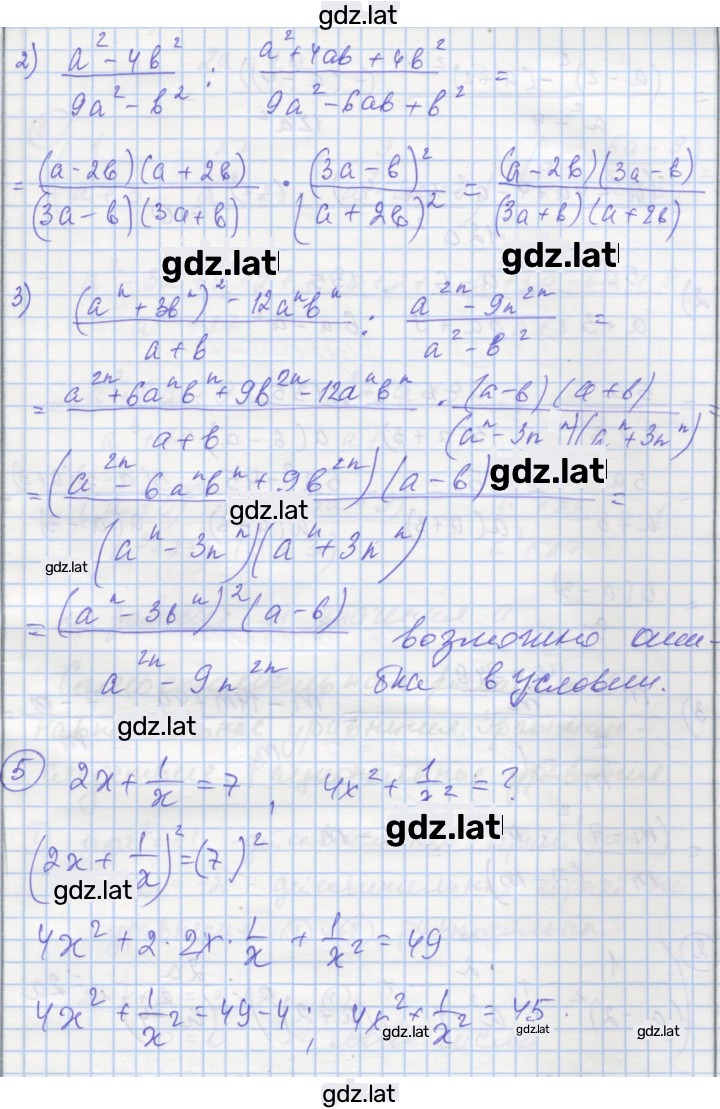 gdz.lat
2) (a² - 4b²)/(9a² - b²) : (a² + 4ab + 4b²)/(9a² - 6ab + b²) =
= ((a - 2b)(a + 2b))/((3a - b)(3a + b)) · (3a - b)²/(a + 2b)² = ((a - 2b)(3a - b))/((3a + b)(a + 2b))
gdz.lat gdz.lat
3) ((aⁿ + 3bⁿ)² - 12aⁿbⁿ)/(a + b) : (a²ⁿ - 9n²ⁿ)/(a² - b²) =
= (a²ⁿ + 6aⁿbⁿ + 9b²ⁿ - 12aⁿbⁿ)/(a + b) · ((a - b)(a + b))/((aⁿ - 3nⁿ)(aⁿ + 3nⁿ)) =
gdz.lat
= ((a²ⁿ - 6aⁿbⁿ + 9b²ⁿ)(a - b))/((aⁿ - 3nⁿ)(aⁿ + 3nⁿ)) =
gdz.lat
gdz.lat
= ((aⁿ - 3bⁿ)²(a - b))/(a²ⁿ - 9n²ⁿ) возможно оши-
бка в условии.
gdz.lat
5 2x + 1/x = 7, 4x² + 1/x² = ?
gdz.lat
(2x + 1/x)² = (7)²
gdz.lat
4x² + 2 · 2x · 1/x + 1/x² = 49
4x² + 1/x² = 49 - 4; 4x² + 1/x² = 45.
gdz.lat gdz.lat gdz.lat
gdz.lat